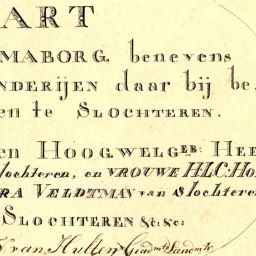 AART
MABORG, benevens
NDERIJEN daar bij be,
en te SLOCHTEREN.
en HOOGWELGEB: HEE
lochteren, en VROUWE H.L.C: Ho
RA VELDTMAN van Slochtere
SLOCHTEREN &c: &c:
van Hulten Geadm. Landm.